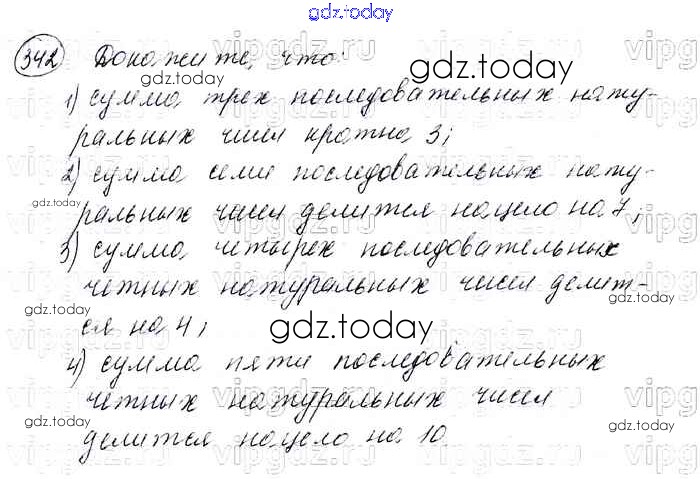 gdz.today
342 Докажите, что:
gdz.today
1) сумма трех последовательных нату-
ральных чисел кратна 3;
gdz.today
2) сумма семи последовательных нату-
ральных чисел делится нацело на 7;
gdz.today
3) сумма четырех последовательных
четных натуральных чисел делит-
ся на 4;
gdz.today
4) сумма пяти последовательных
четных натуральных чисел
gdz.today
делится нацело на 10
gdz.today